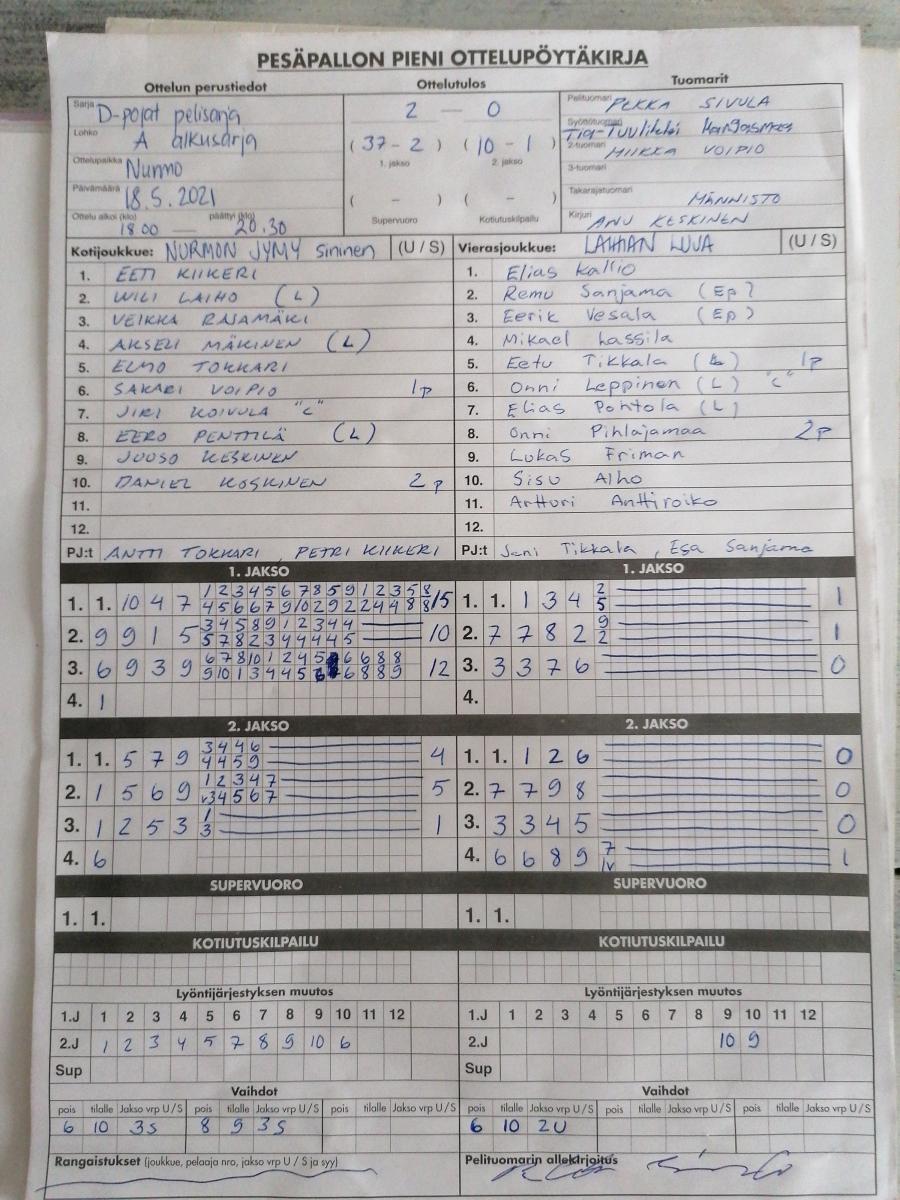 PESÄPALLON PIENI OTTELUPÖYTÄKIRJA
Ottelun perustiedot Ottelutulos Tuomarit
Sarja D-pojat pelisarja
Lohko A alkusarja
Ottelupaikka Nurmo
Päivämäärä 18.5.2021
Ottelu alkoi (klo) päättyi (klo)
18 00 — 20.30
2 — 0
( 37 - 2 ) ( 10 - 1 )
1. jakso 2. jakso
( - ) ( - )
Supervuoro Kotiutuskilpailu
Pelituomari PEKKA SIVULA
Syöttötuomari
2-tuomari MIIKKA VOIPIO
3-tuomari
Takarajatuomari MÄNNISTÖ
Kirjuri ANU KESKINEN
Kotijoukkue: NURMON JYMY Sininen (U / S)
1. EETI KIIKERI
2. WILI LAIHO (L)
3. VEIKKA RAJAMÄKI
4. AKSELI MÄKINEN (L)
5. ELMO TOKKARI
6. SAKARI VOIPIO 1p
7. JIRI KOIVULA "C"
8. EERO PENTTILÄ (L)
9. JUUSO KESKINEN
10. DANIEL KOSKINEN 2p
11.
12.
PJ:t ANTTI TOKKARI, PETRI KIIKERI
Vierasjoukkue: LAIHIAN LUJA (U / S)
1. Elias Kallio
2. Remu Sanjama (Ep)
3. Eerik Vesala (Ep)
4. Mikael Lassila
5. Eetu Tikkala (L) 1p
6. Onni Leppinen (L) "C"
7. Elias Pohtola (L)
8. Onni Pihlajamaa 2p
9. Lukas Friman
10. Sisu Alho
11. Artturi Anttiroiko
12.
PJ:t Jani Tikkala, Esa Sanjama
1. JAKSO
1. 1. 10 4 7
1 2 3 4 5 6 7 8 5 9 1 2 3 5 8
4 5 6 6 7 9 10 2 9 2 2 4 4 8 8
15
2. 9 9 1 5
3 4 5 8 9 1 2 3 4 4
5 7 8 2 3 4 4 4 4 5
10
3. 6 9 3 9
12
4. 1
1. JAKSO
1. 1. 1 3 4
2
5
1
2. 7 7 8 2
9
2
1
3. 3 3 7 6 0
4.
2. JAKSO
1. 1. 5 7 9
3 4 4 6
4 4 5 9
4
2. 1 5 6 9
1 2 3 4 7
v3 4 5 6 7
5
3. 1 2 5 3
1
3
1
4. 6
2. JAKSO
1. 1. 1 2 6 0
2. 7 7 9 8 0
3. 3 3 4 5 0
4. 6 6 8 9
7
1v
1
SUPERVUORO SUPERVUORO
1. 1. 1. 1.
KOTIUTUSKILPAILU KOTIUTUSKILPAILU
Lyöntijärjestyksen muutos
1.J 1 2 3 4 5 6 7 8 9 10 11 12
2.J 1 2 3 4 5 7 8 9 10 6
Sup
Lyöntijärjestyksen muutos
1.J 1 2 3 4 5 6 7 8 9 10 11 12
2.J 10 9
Sup
Vaihdot
pois tilalle Jakso vrp U / S pois tilalle Jakso vrp U / S pois tilalle Jakso vrp U / S
6 10 3S 8 9 3S
Vaihdot
pois tilalle Jakso vrp U / S pois tilalle Jakso vrp U / S pois tilalle Jakso vrp U / S
6 10 2U
Rangaistukset (joukkue, pelaaja nro, jakso vrp U / S ja syy)
Pelituomarin allekirjoitus